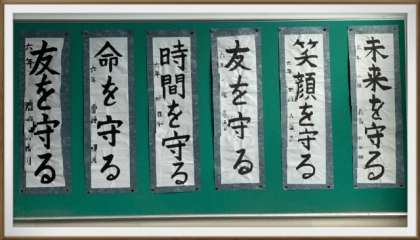 未来を守る
笑顔を守る
友を守る
時間を守る
命を守る
友を守る
六年